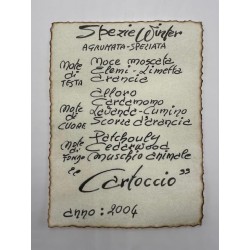 Spezie Winter
AGRUMATA-SPEZIATA
Note di TESTA
Noce moscata
Elemi-Limetta
arancia
Note di CUORE
Alloro
Cardamomo
Lavanda-Cumino
Scorza d'arancia
Note di Fondo
Patchouly
Cedarwood
muschio animale
"Le Cartoccio"
anno: 2004